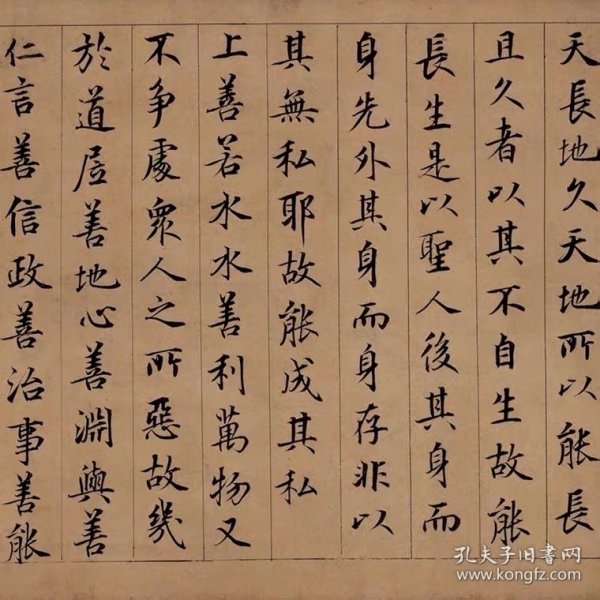 天長地久天地所以能長
且久者以其不自生故能
長生是以聖人後其身而
身先外其身而身存非以
其無私耶故能成其私
上善若水水善利萬物又
不爭處衆人之所惡故幾
於道居善地心善淵與善
仁言善信政善治事善能
孔夫子旧书网
www.kongfz.com